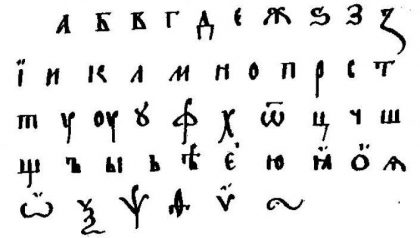 а б в г д є ж ѕ з ꙁ
ї и к л м н о п р с т
т у оу ꙋ ф х ѿ ц ч ш
щ ъ ы ь ѣ є ю ꙗ̈ ӧ ѧ
ѡ̈ ѯ ѱ ѵ̈